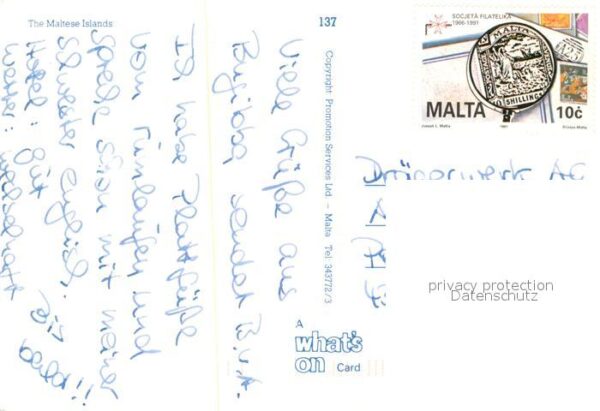 The Maltese Islands
137
Viele Grüße aus
Bugibba, sendet B.u.A.
Ich habe Plattfüße
vom Rumlaufen und
spreche schon mit meiner
Schwester englisch.
Hotel: gut
Wetter: wechselhaft
Copyright Promotion Services Ltd. – Malta Tel: 343772/3
A
what's
on Card
SOCJETÀ FILATELIKA
1966-1991
MALTA
SHILLINGS
MALTA 10c
1991
Printex Malta
Drägerwerk AG
privacy protection
Datenschutz